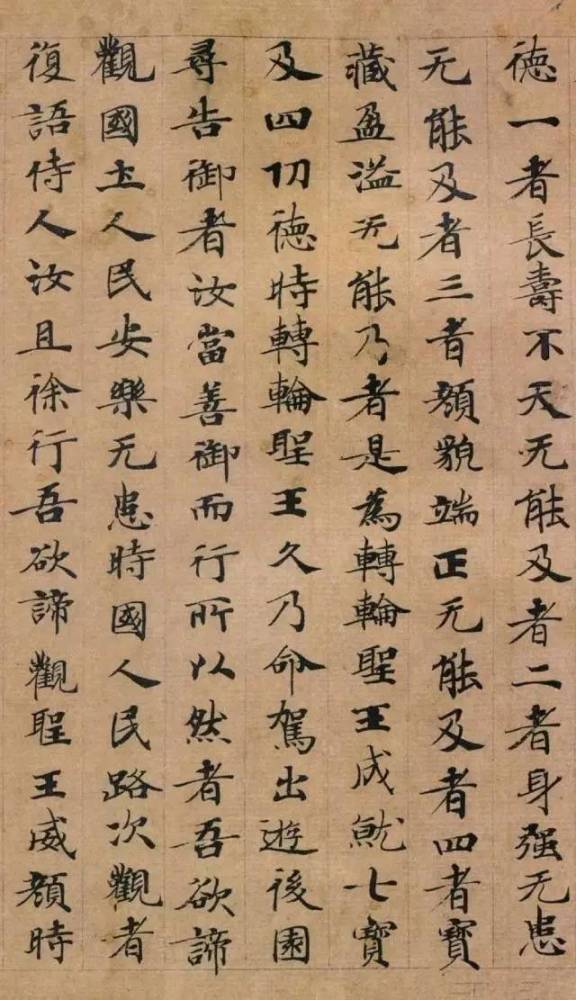 徳一者長壽不夭无能及者二者身强无患
无能及者三者顏貌端正无能及者四者寶
藏盈溢无能乃者是為轉輪聖王成就七寶
及四功徳時轉輪聖王久乃命駕出遊後園
尋告御者汝當善御而行所以然者吾欲諦
觀國土人民安樂无患時國人民路次觀者
復語侍人汝且徐行吾欲諦觀聖王威顏時